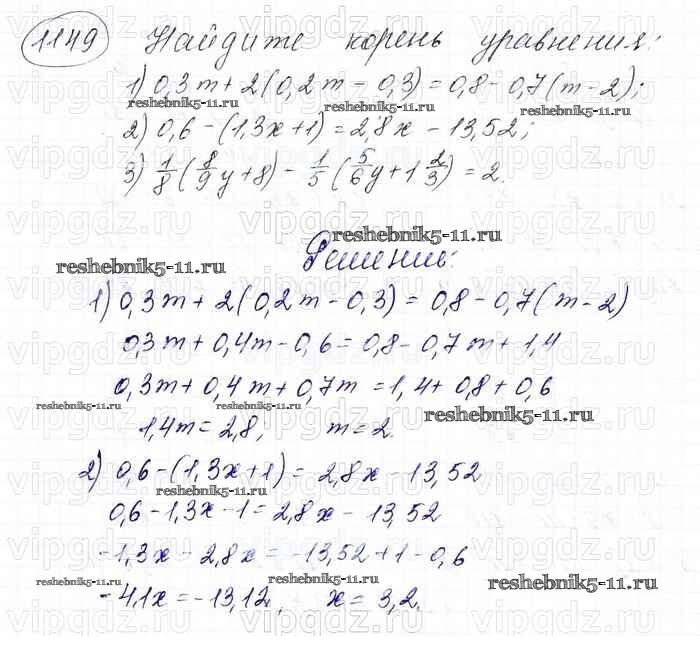 1149 Найдите корень уравнения:
1) 0,3m + 2(0,2m - 0,3) = 0,8 - 0,7(m - 2);
reshebnik5-11.ru reshebnik5-11.ru
2) 0,6 - (1,3x + 1) = 2,8x - 13,52;
3) 1/8 (8/9 y + 8) - 1/5 (5/6 y + 1 2/3) = 2.
reshebnik5-11.ru
Решение:
reshebnik5-11.ru
1) 0,3m + 2(0,2m - 0,3) = 0,8 - 0,7(m - 2)
0,3m + 0,4m - 0,6 = 0,8 - 0,7m + 1,4
0,3m + 0,4m + 0,7m = 1,4 + 0,8 + 0,6
reshebnik5-11.ru reshebnik5-11.ru reshebnik5-11.ru
1,4m = 2,8, m = 2.
2) 0,6 - (1,3x + 1) = 2,8x - 13,52
reshebnik5-11.ru
0,6 - 1,3x - 1 = 2,8x - 13,52
-1,3x - 2,8x = -13,52 + 1 - 0,6
reshebnik5-11.ru reshebnik5-11.ru reshebnik5-11.ru
-4,1x = -13,12, x = 3,2.